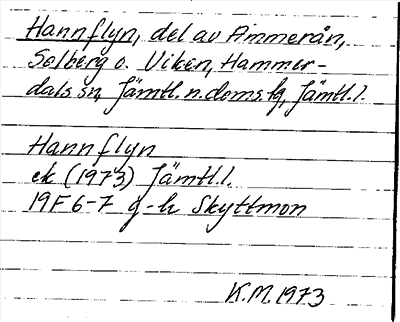 Hannflyn, del av Ammerån,
Solberg o. Viken, Hammer-
dals sn, Jämtl. n. doms. lg, Jämtl. l.
Hannflyn
ek (1973) Jämtl. l.
19F 6-7 g-h Skyttmon
K.M. 1973